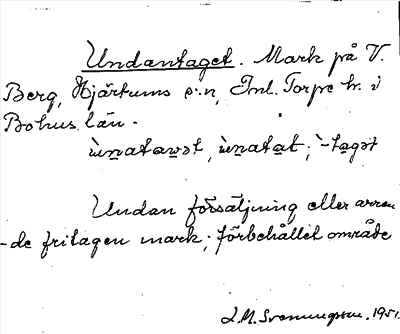 Undantaget. Mark på V.
Berg, Hjärtums s:n, Inl. Torpe hd i
Bohus län.
ùnatawət, ùnatat; -tagət
Undan försäljning eller arren
-de fritagen mark; förbehållet område
J.M. Svenningson. 1951.